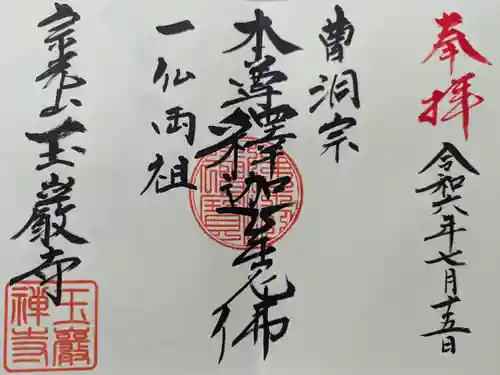 奉拝
令和六年七月十五日
曹洞宗
本尊釋迦牟尼佛
一仏両祖
宗秀山玉巖寺
玉巖
禅寺